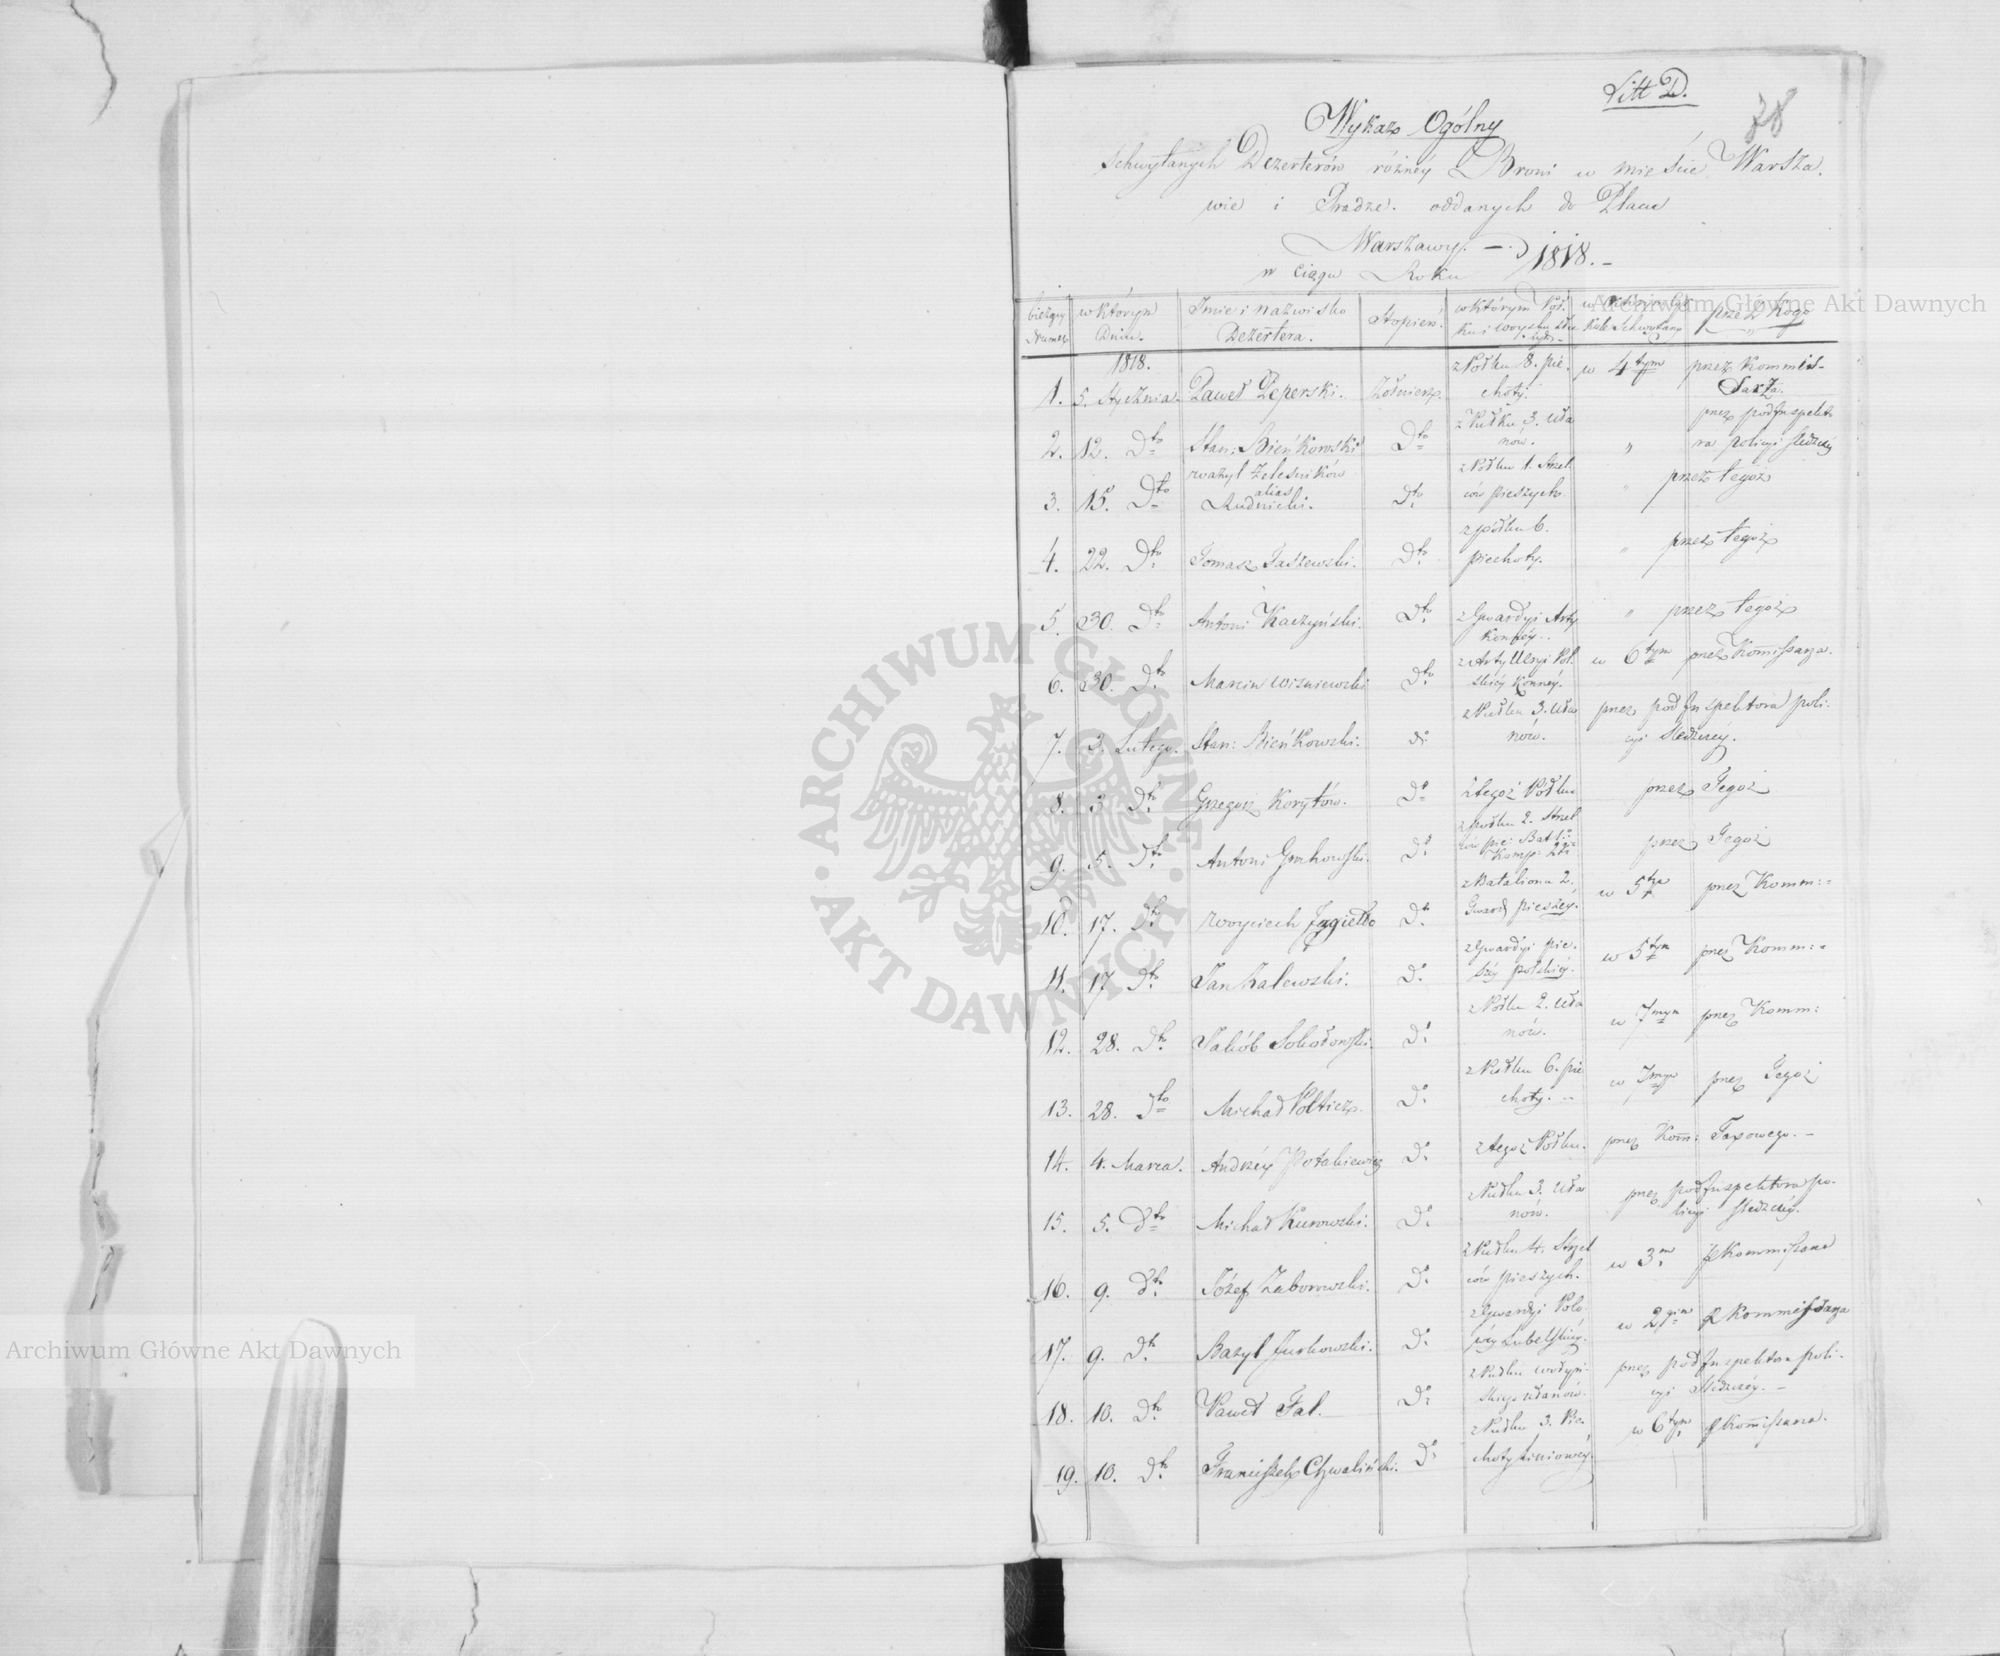 Litt D.
28
Wykaz Ogólny
Schwytanych Dezerterów różnéy Broni w mieście Warsza.
wie i Pradze. oddanych do Placu
Warszawy. —
w ciągu Roku 1818. –
bieżący Numer | w którym Dniu. | Imie i nazwisko Dezertera. | Stopień. | w którym Pół- | Schwytany | przez kogo
1818.
1. | 5. Stycznia. | Paweł Peperski. | Żołnierz. | z Połku 8. pie. choty. | w 4tym | przez Kommis- sarza.
2. | 12. Dto | Stan: Bieńkowski | Dto | z Pułku 3. Uła nów. | " | przez podInspekto ra policyi śledczéy
3. | 15. Dto | Zelesników alias Rudnicki. | Dto | z Połku 1. Strzel ców pieszych. | " | przez tegoż
4. | 22. Dto | Tomasz Taszewski. | Dto | z półku 6. piechoty. | " | przez tegoż
5. | 30. Dto | Antoni Kaczyński. | Dto | z Gwardyi Arty Konnéy. | " | przez tegoż
6. | 30. Dto | Marcin Wiśniewski | Dto | z Artylleryi Pol. skiéy Konnéy. | w 6tym | przez Komissarza.
7. | 3. Lutego. | Stan: Bieńkowski. | do | z Pułku 3. Uła nów. | przez podInspektora poli. cyi śledczéy.
8. | 3. Dto | Grzegorz Korytów. | Do | z tegoż Połku | przez Tegoż
9. | 5. Dto | Antoni | Do | z połku 2. Strzel ców pie: Bat: 1. Komp: 2. | przez Tegoż
10. | 17. Dto | Woyciech Jagiełło | Dto | z Bataliona 2. Gward pieszéy. | w 5tym | przez Komm:
11. | 17 Dto | Jan Zalewski. | Do | z Gwardyi pie. széy polskiéy. | w 5tym | przez Komm:
12. | 28. Dto | Jakób Sokołowski. | Do | z Połku 2. Uła nów. | w 7mym | przez Komm:
13. | 28. Dto | Michał | Do | z Pułku 6. pie choty. | w 7mym | przez Tegoż
14. | 4. Marca. | Andrzéy Potakiewicz | Do | z tegoż Połku. | przez Kom: Taxowego. –
15. | 5. Dto | Michał Kurowski. | Do | z Pułku 3. Uła nów. | przez podInspektora po- licyi śledczéy.
16. | 9. Dto | Józef Zaborowski. | Do | z Pułku 4. Strzel ców pieszych. | w 3m | p Kommissarza
17. | 9. Dto | Bazyl Jurkowski. | Do | z Gwardyi Lubelskiéy. | w 2gim | p Kommissarza
18. | 10. Dto | Paweł Fal. | Do | z Pułku wołyń- skiego ułanów. | przez podInspektora poli- cyi śledczéy. –
19. | 10. Dto | Franciszek Chwaliński. | Do | z Pułku 3. Pie. choty liniowéy. | w 6tym | p Kommissarza.
Archiwum Główne Akt Dawnych
ARCHIWUM GŁÓWNE · AKT DAWNYCH ·
Archiwum Główne Akt Dawnych